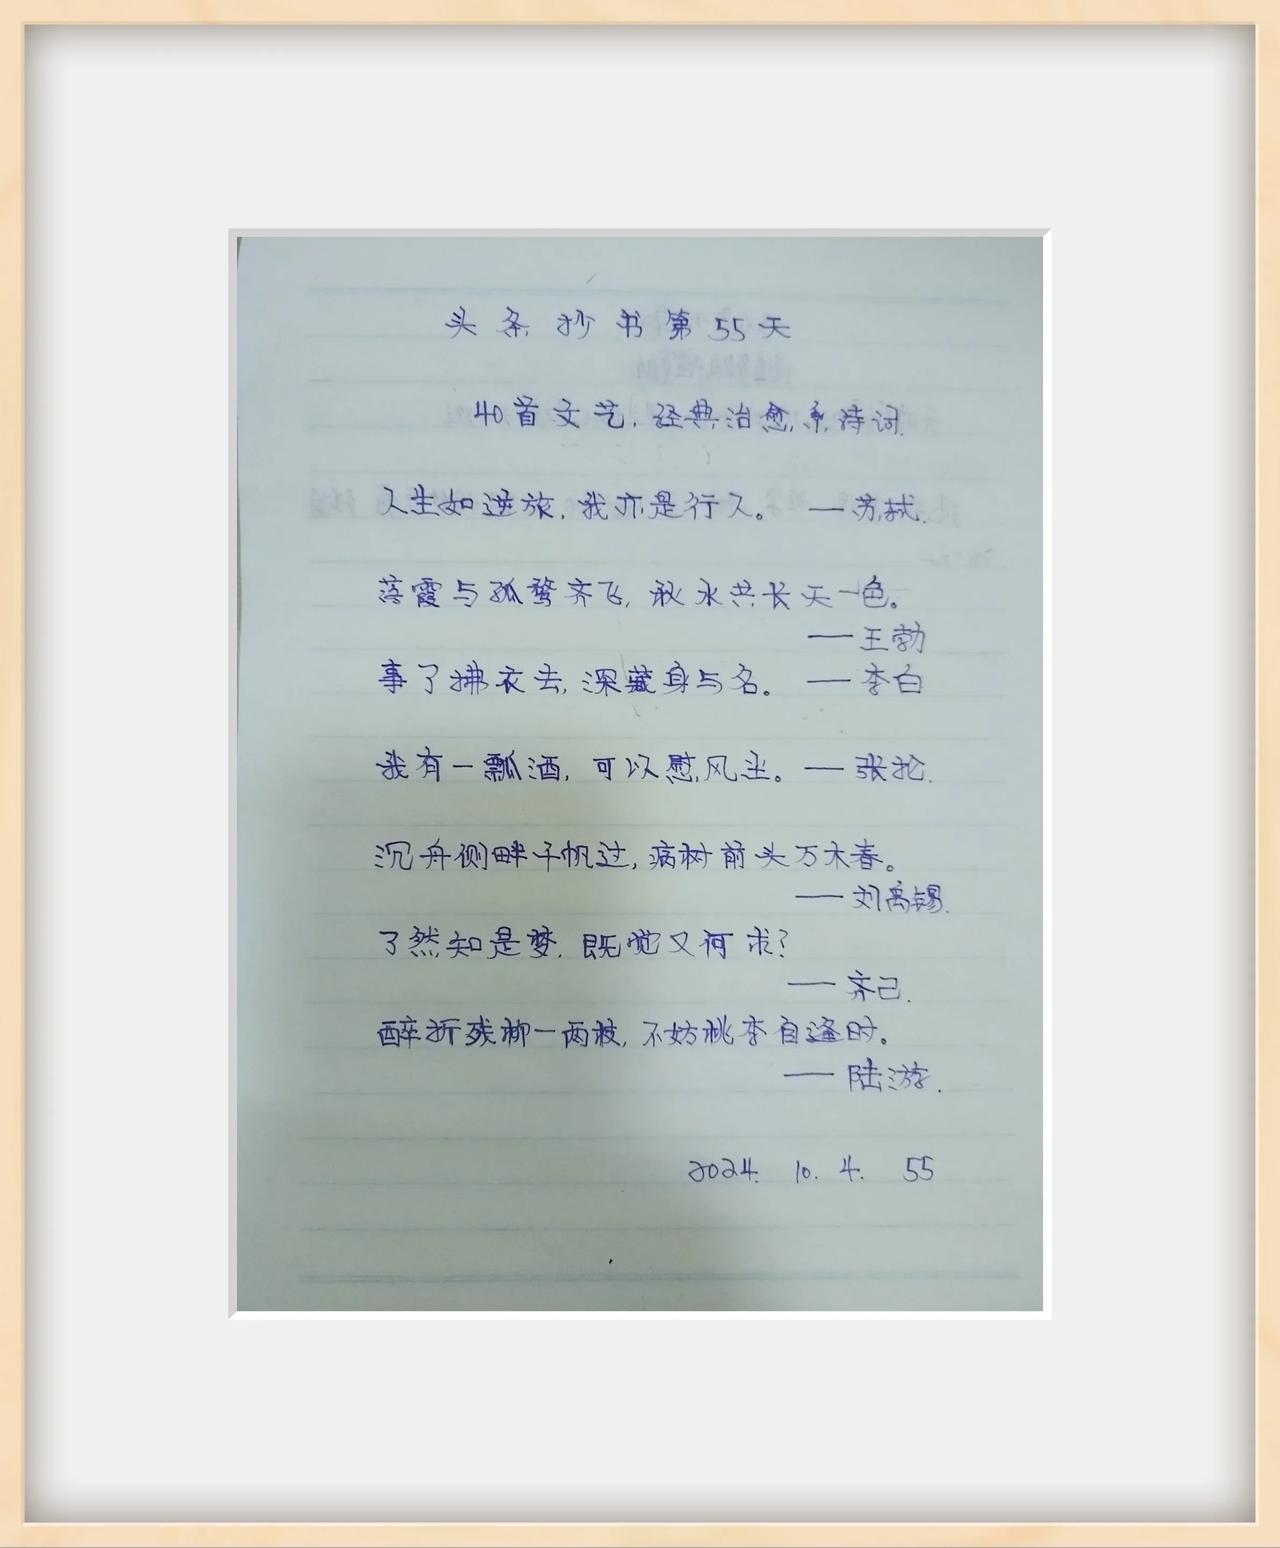 头条抄书第55天
40首文艺,经典治愈系诗词.
人生如逆旅,我亦是行人。——苏轼.
落霞与孤鹜齐飞,秋水共长天一色。
——王勃
事了拂衣去,深藏身与名。——李白
我有一瓢酒,可以慰风尘。——张抡.
沉舟侧畔千帆过,病树前头万木春。
——刘禹锡.
了然知是梦,既觉又何求?
——齐己.
醉折残柳一两枝,不妨桃李自逢时。
——陆游.
2024. 10. 4. 55